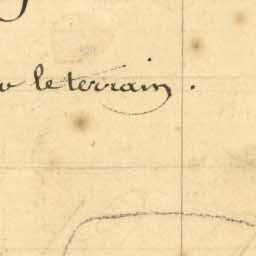 le terrain.